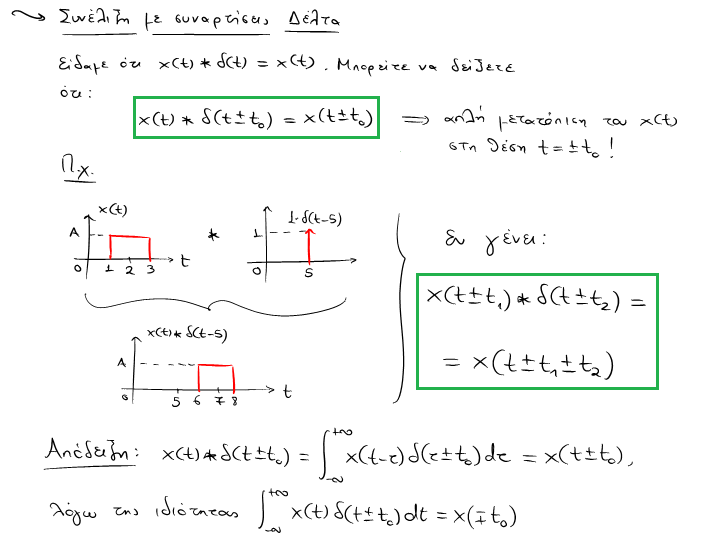 Συνέλιξη με συναρτήσεις Δέλτα
Είδαμε ότι x(t) * δ(t) = x(t). Μπορείτε να δείξετε
ότι:
x(t) * δ(t ± t₀) = x(t ± t₀) ⇒ απλή μετατόπιση του x(t)
στη θέση t = ± t₀ !
Π.χ.
x(t)
A
0 1 2 3 t
*
1·δ(t-5)
1
0 5
x(t) * δ(t-5)
A
0 5 6 7 8 t
Εν γένει:
x(t ± t₁) * δ(t ± t₂) =
= x(t ± t₁ ± t₂)
Απόδειξη: x(t) * δ(t ± t₀) = ∫_{-∞}^{+∞} x(t-τ) δ(τ ± t₀) dτ = x(t ± t₀),
λόγω της ιδιότητας ∫_{-∞}^{+∞} x(t) δ(t ± t₀) dt = x(∓ t₀)